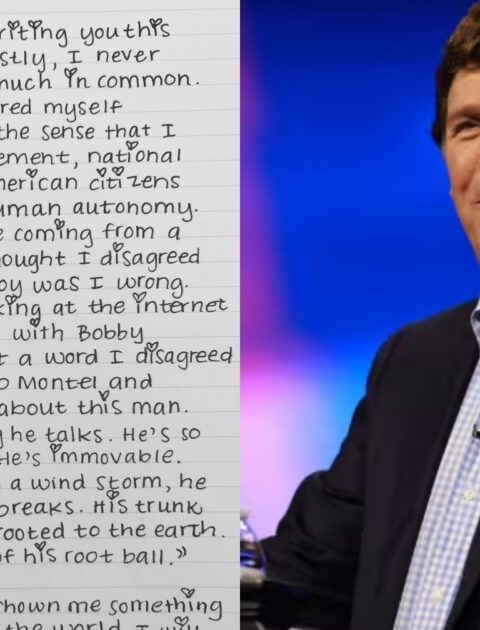 riting you this
stly, I never
much in common.
red myself
the sense that I
ement, national
merican citizens
uman autonomy.
e coming from a
hought I disagreed
oy was I wrong.
king at the internet
with Bobby
t a word I disagreed
o Montel and
about this man.
y he talks. He's so
He's immovable.
n a wind storm, he
breaks. His trunk
rooted to the earth.
of his root ball."
shown me something
the world. I